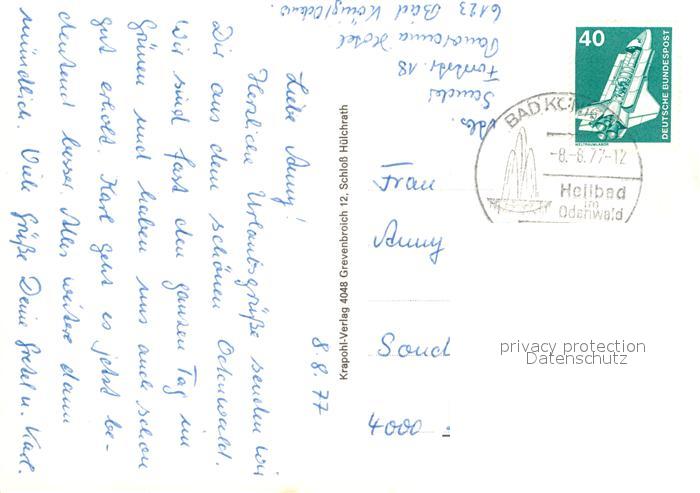 8.8.77
Liebe Anny!
Herzliche Urlaubsgrüße senden wir
Dir aus dem schönen Odenwald.
Wir sind fast den ganzen Tag im
Grünen und haben uns auch schon
gut erholt. Karl geht es jetzt be-
deutend besser. Alles weitere dann
mündlich. Viele Grüße Deine Gretel u. Karl.
Krapohl-Verlag 4048 Grevenbroich 12, Schloß Hülchrath
Abs.
Forststr. 18
Panorama Hotel
6123 Bad König/Odenw.
Frau
Anny
Sand
4000
40
DEUTSCHE BUNDESPOST
WELTRAUMLABOR
BAD KÖNIG
-8.-8.77-12
Heilbad
im
Odenwald
privacy protection
Datenschutz